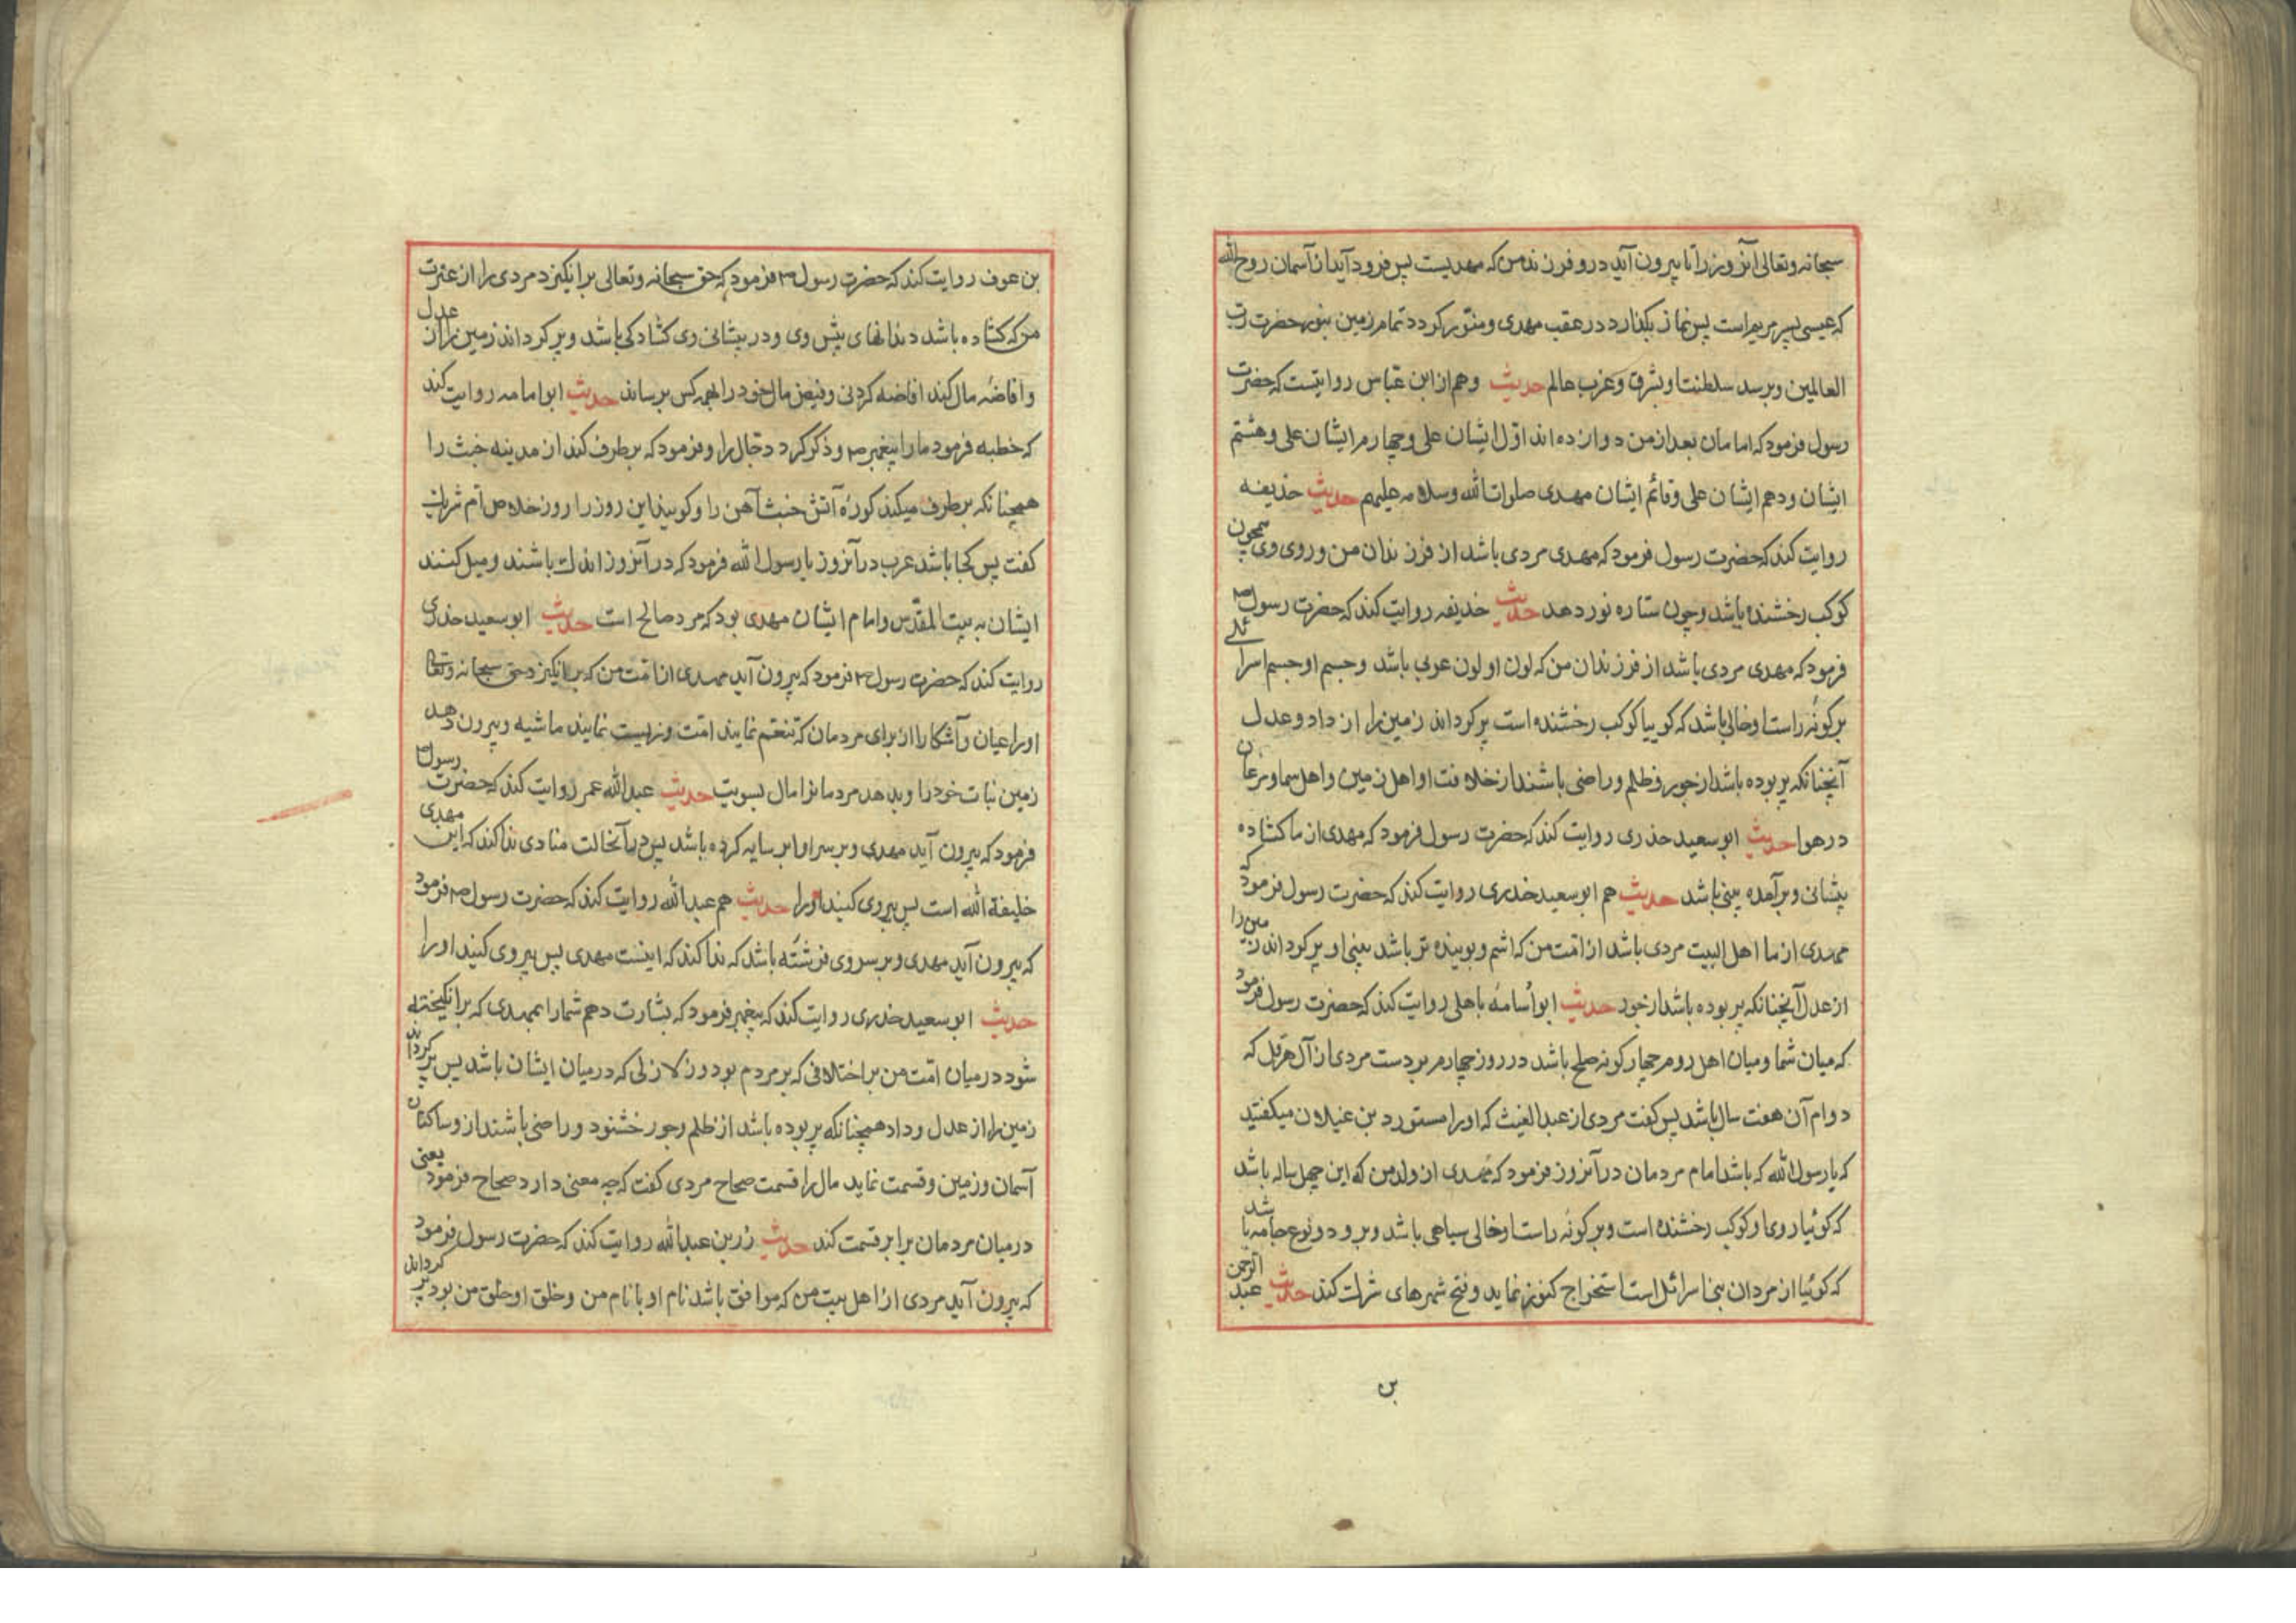 سبحانه وتعالی آنروز را تا بیرون آید درو فرزند من که مهدیست پس فرود آید از آسمان روح الله
که عیسی پسر مریم است پس نماز بکذارد در عقب مهدی و منور کردد تمام زمین بنور حضرت رب
العالمین و برسد سلطنت او بشرق و غرب عالم حدیث وهم از ابن عباس روایتست که حضرت
رسول فرمود که امامان بعد از من دوازده اند اول ایشان علی و چهارم ایشان علی و هشتم
ایشان و دهم ایشان علی و قائم ایشان مهدی صلوات الله وسلامه علیهم حدیث حذیفه
روایت کند که حضرت رسول فرمود که مهدی مردی باشد از فرزندان من و روی وی همچون
کوکب رخشنده باشد و چون ستاره نور دهد حدیث حذیفه روایت کند که حضرت رسول ص
فرمود که مهدی مردی باشد از فرزندان من که لون او لون عربی باشد و جسم او جسم اسرائلی
بر کونهٔ راست او خالی باشد که کوییا کوکب رخشنده است پر کرداند زمین را از داد و عدل
آنچنانکه پر بوده باشد از جور و ظلم و راضی باشند از خلافت او اهل زمین و اهل سما و مرغان
در هوا حدیث ابو سعید خدری روایت کند که حضرت رسول فرمود که مهدی از ما کشاده
پیشانی و برآمده بینی باشد حدیث هم ابو سعید خدری روایت کند که حضرت رسول فرمود که
مهدی از ما اهل البیت مردی باشد از امت من که اشم و بوینده تر باشد بینی او پر کرداند زمین را
از عدل آنچنانکه پر بوده باشد از جور حدیث ابو اسامهٔ باهلی روایت کند که حضرت رسول فرمود
که میان شما و میان اهل روم چهار کونه صلح باشد در روز چهارم بر دست مردی از آل هرقل که
دوام آن هفت سال باشد پس کفت مردی از عبد الغیث که اورا مستورد بن غیلان میکفتند
که یا رسول الله که باشد امام مردمان در آنروز فرمود که مهدی از ولد من که ابن چهل ساله باشد
که کوئیا روی او کوکب رخشنده است و بر کونهٔ راست او خالی سیاهی باشد و برو دو نوع جامه باشد
که کوئیا از مردان بنی اسرائل است استخراج کنوز نماید و فتح شهرهای شرک کند حدیث عبد الرحمن
بن
بن عوف روایت کند که حضرت رسول ص فرمود که حق سبحانه وتعالی برانکیزد مردی را از عترت
من که کشاده باشد دندانهای پیش وی و در پیشانی وی کشادکی باشد و پر کرداند زمین را از عدل
و افاضهٔ مال کند افاضه کردنی و فیض مال خود را بهمه کس برساند حدیث ابو امامه روایت کند
که خطبه فرمود ما را پیغمبر ص و ذکر کرد دجال را و فرمود که بر طرف کند از مدینه خبث را
همچنانکه بر طرف میکند کورهٔ آتش خبث آهن را و کویند این روز را روز خلاص ام شریک
کفت پس کجا باشد عرب در آنروز یا رسول الله فرمود که در آنروز اندک باشند و میل کنند
ایشان به بیت المقدس و امام ایشان مهدی بود که مرد صالح است حدیث ابو سعید خدری
روایت کند که حضرت رسول ص فرمود که بیرون آید مهدی از امت من که برانکیزد حق سبحانه وتعالی
اورا عیان و آشکارا از برای مردمان که تنعم نمایند امت و زیست نمایند ماشیه و بیرون دهد
زمین نبات خود را و بدهد مردمانرا مال بسویت حدیث عبد الله عمر روایت کند که حضرت رسول ص
فرمود که بیرون آید مهدی و بر سر او ابر سایه کرده باشد پس در آنحالت منادی ندا کند که این مهدی
خلیفة الله است پس پیروی کنید اورا حدیث هم عبد الله روایت کند که حضرت رسول ص فرمود
که بیرون آید مهدی و بر سر وی فرشته باشد که ندا کند که اینست مهدی پس پیروی کنید اورا
حدیث ابو سعید خدری روایت کند که پیغمبر فرمود که بشارت دهم شما را بمهدی که برانکیخته
شود در میان امت من بر اختلافی که بر مردم بود و زلازلی که در میان ایشان باشد پس پر کرداند
زمین را از عدل و داد همچنانکه پر بوده باشد از ظلم و جور خشنود و راضی باشند ازو ساکنان
آسمان و زمین و قسمت نماید مال را قسمت صحاح مردی کفت که چه معنی دارد صحاح فرمود یعنی
در میان مردمان برابر قسمت کند حدیث زر بن عبد الله روایت کند که حضرت رسول فرمود
که بیرون آید مردی از اهل بیت من که موافق باشد نام او با نام من و خلق او خلق من بود پر کرداند